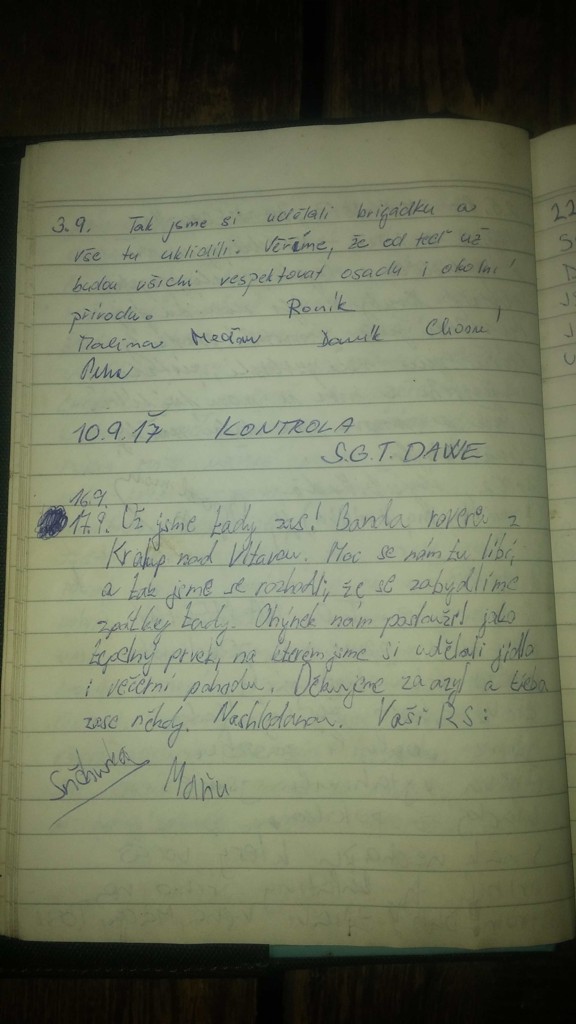 3.9. Tak jsme si udělali brigádku a
vše tu uklidili. Věříme, že od teď už
budou všichni respektovat osadu i okolní
přírodu. Roník
Malina Daník
10.9.17 KONTROLA
S.G.T. DAWE
16.9.
17.9. Už jsme tady zas! Banda roverů z
Kralup nad Vltavou. Moc se nám tu líbí,
a tak jsme se rozhodli, že se zabydlíme
zpátky tady. Ohýnek nám posloužil jako
tepelný prvek, na kterém jsme si udělali jídlo
i večerní pohodu. Děkujeme za azyl a třeba
zase někdy. Nashledanou. Vaši RS:
Maňu
22